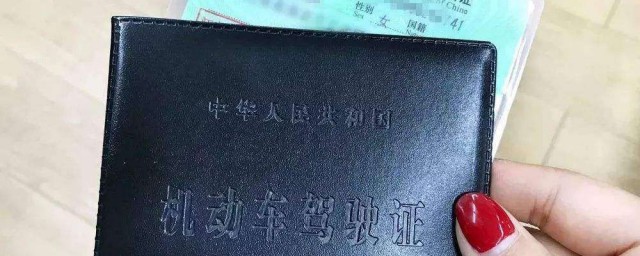 证
of China
性别 女 国籍
Sex
41
中华人民共和国
机动车驾驶证